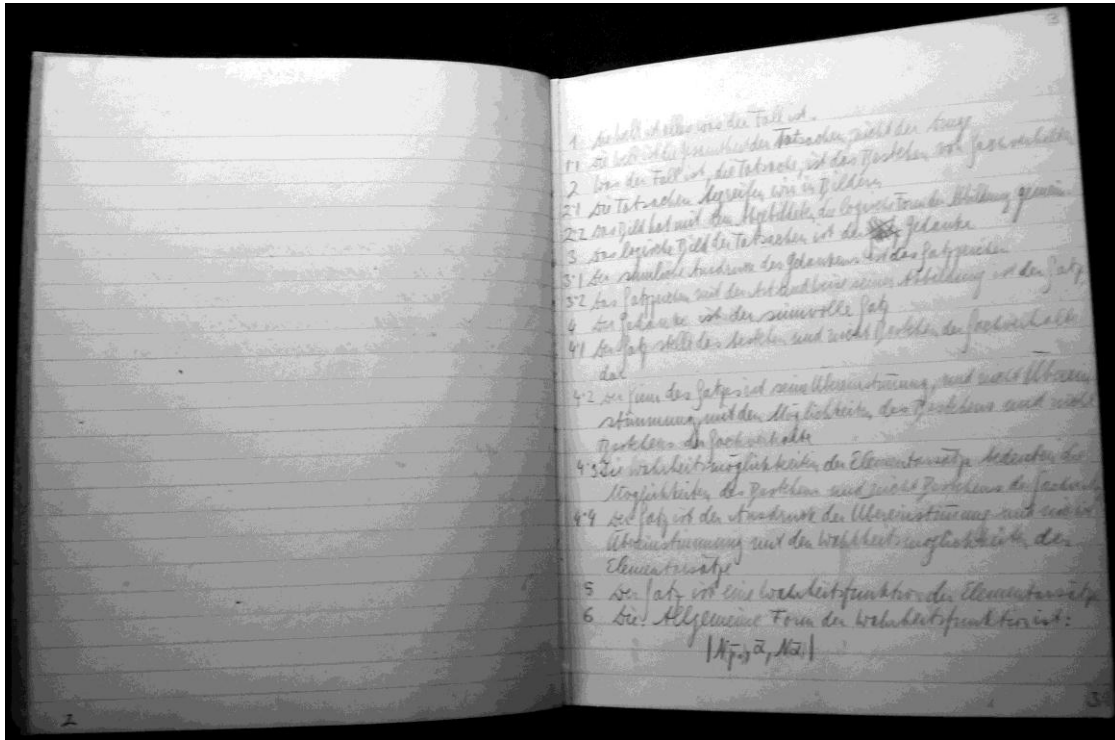 3
1 Die Welt ist alles was der Fall ist.
1·1 Die Welt ist die Gesamtheit der Tatsachen, nicht der Dinge
2 Was der Fall ist, die Tatsache, ist das Bestehen von Sachverhalten
2·1 Die Tatsachen begreifen wir in Bildern
2·2 Das Bild hat mit dem Abgebildeten die logische Form der Abbildung gemein.
3 Das logische Bild der Tatsachen ist der Gedanke
3·1 Der sinnliche Ausdruck des Gedankens ist das Satzzeichen
3·2 Das Satzzeichen mit der Art und Weise seiner Abbildung ist der Satz.
4 Der Gedanke ist der sinnvolle Satz
4·1 Der Satz stellt das Bestehen und nicht Bestehen der Sachverhalte
dar
4·2 Der Sinn des Satzes ist seine Übereinstimmung, und nicht Überein
stimmung mit den Möglichkeiten des Bestehens und nicht
Bestehens der Sachverhalte
4·3 Die Wahrheitsmöglichkeiten der Elementarsätze bedeuten die
Möglichkeiten des Bestehens und nicht Bestehens der
4·4 Der Satz ist der Ausdruck der Übereinstimmung und nicht
Übereinstimmung mit den Wahrheitsmöglichkeiten der
Elementarsätze
5 Der Satz ist eine Wahrheitsfunktion der Elementarsätze
6 Die Allgemeine Form der Wahrheitsfunktion ist:
2
3